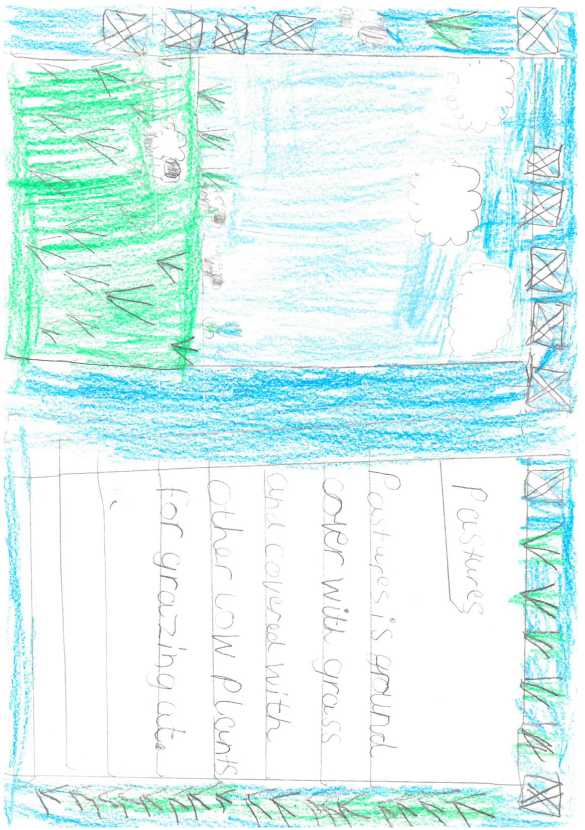 Pastures
Pastures is ground
cover with grass
and covered with
other low plants
for grazing at.